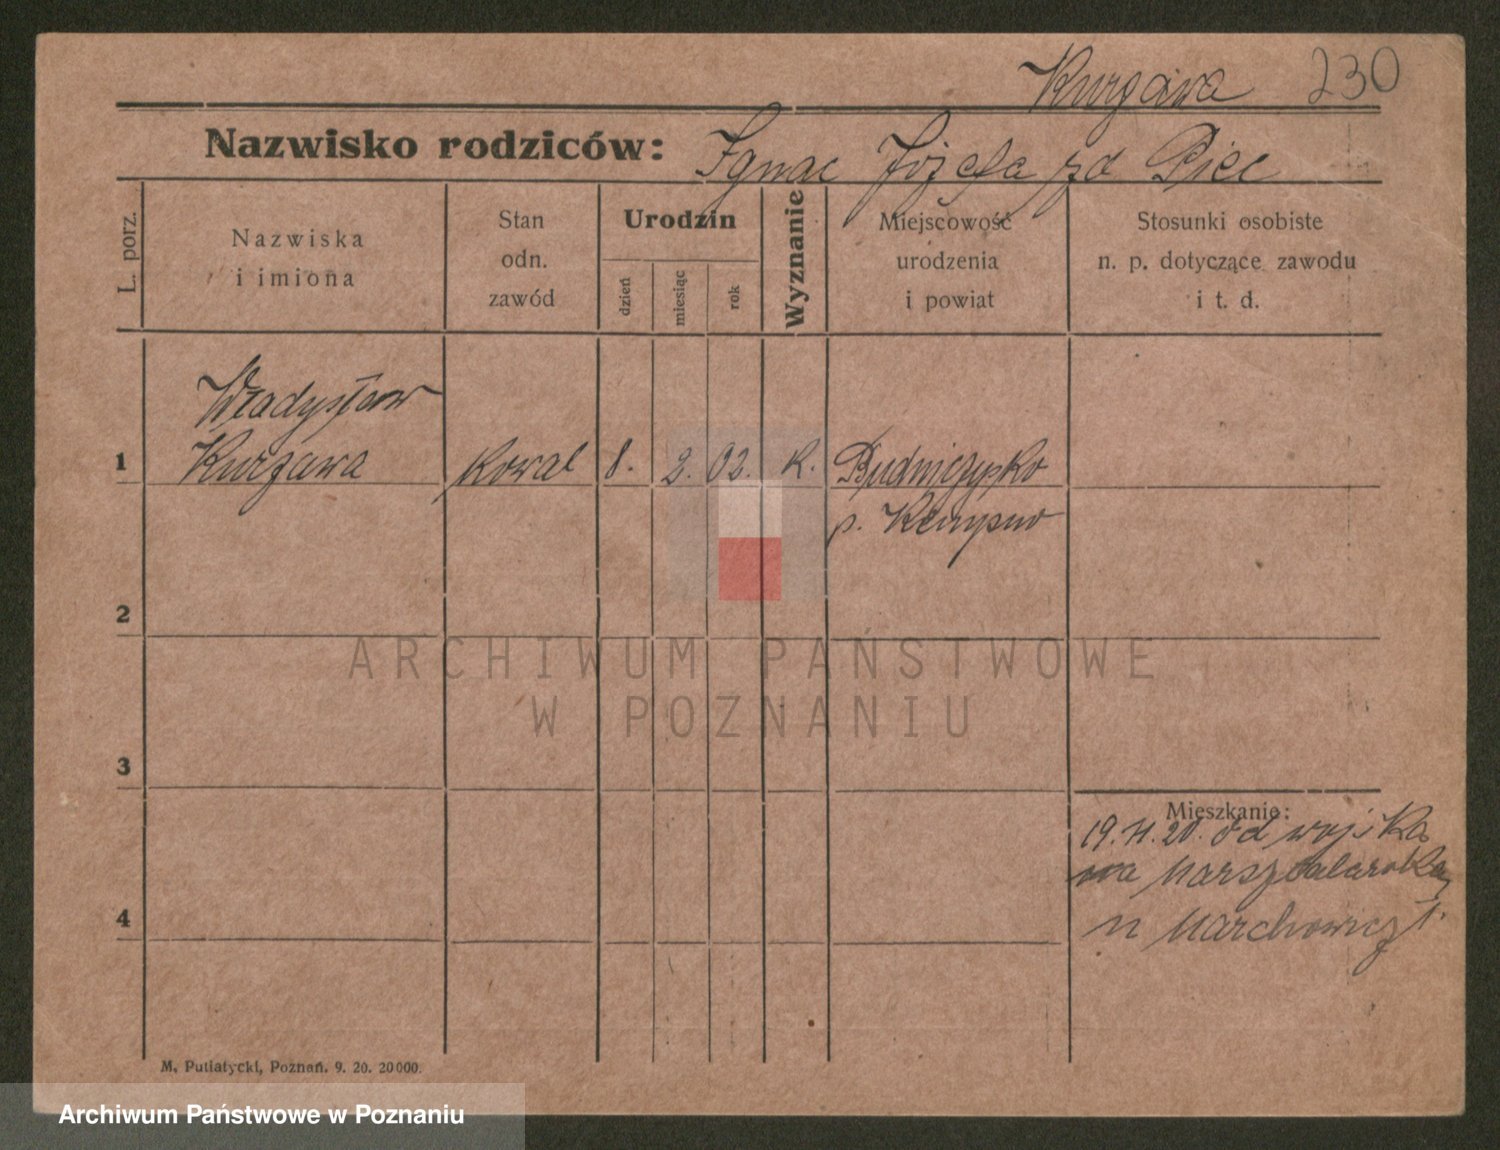 Kurzawa 230
Nazwisko rodziców: Ignac Józefa zd Piec
L. porz.
Nazwiska
i imiona
Stan
odn.
zawód
Urodzin
dzień
miesiąc
rok
Wyznanie
Miejscowość
urodzenia
i powiat
Stosunki osobiste
n. p. dotyczące zawodu
i t. d.
Władysław
1 Kurzawa kowal 8. 2. 02. k.
p. Kempno
2
ARCHIWUM PAŃSTWOWE
W POZNANIU
3
Mieszkanie:
19. 11. 20. od wojska
na
u
4
M. Putiatycki, Poznań. 9. 20. 20000.
Archiwum Państwowe w Poznaniu